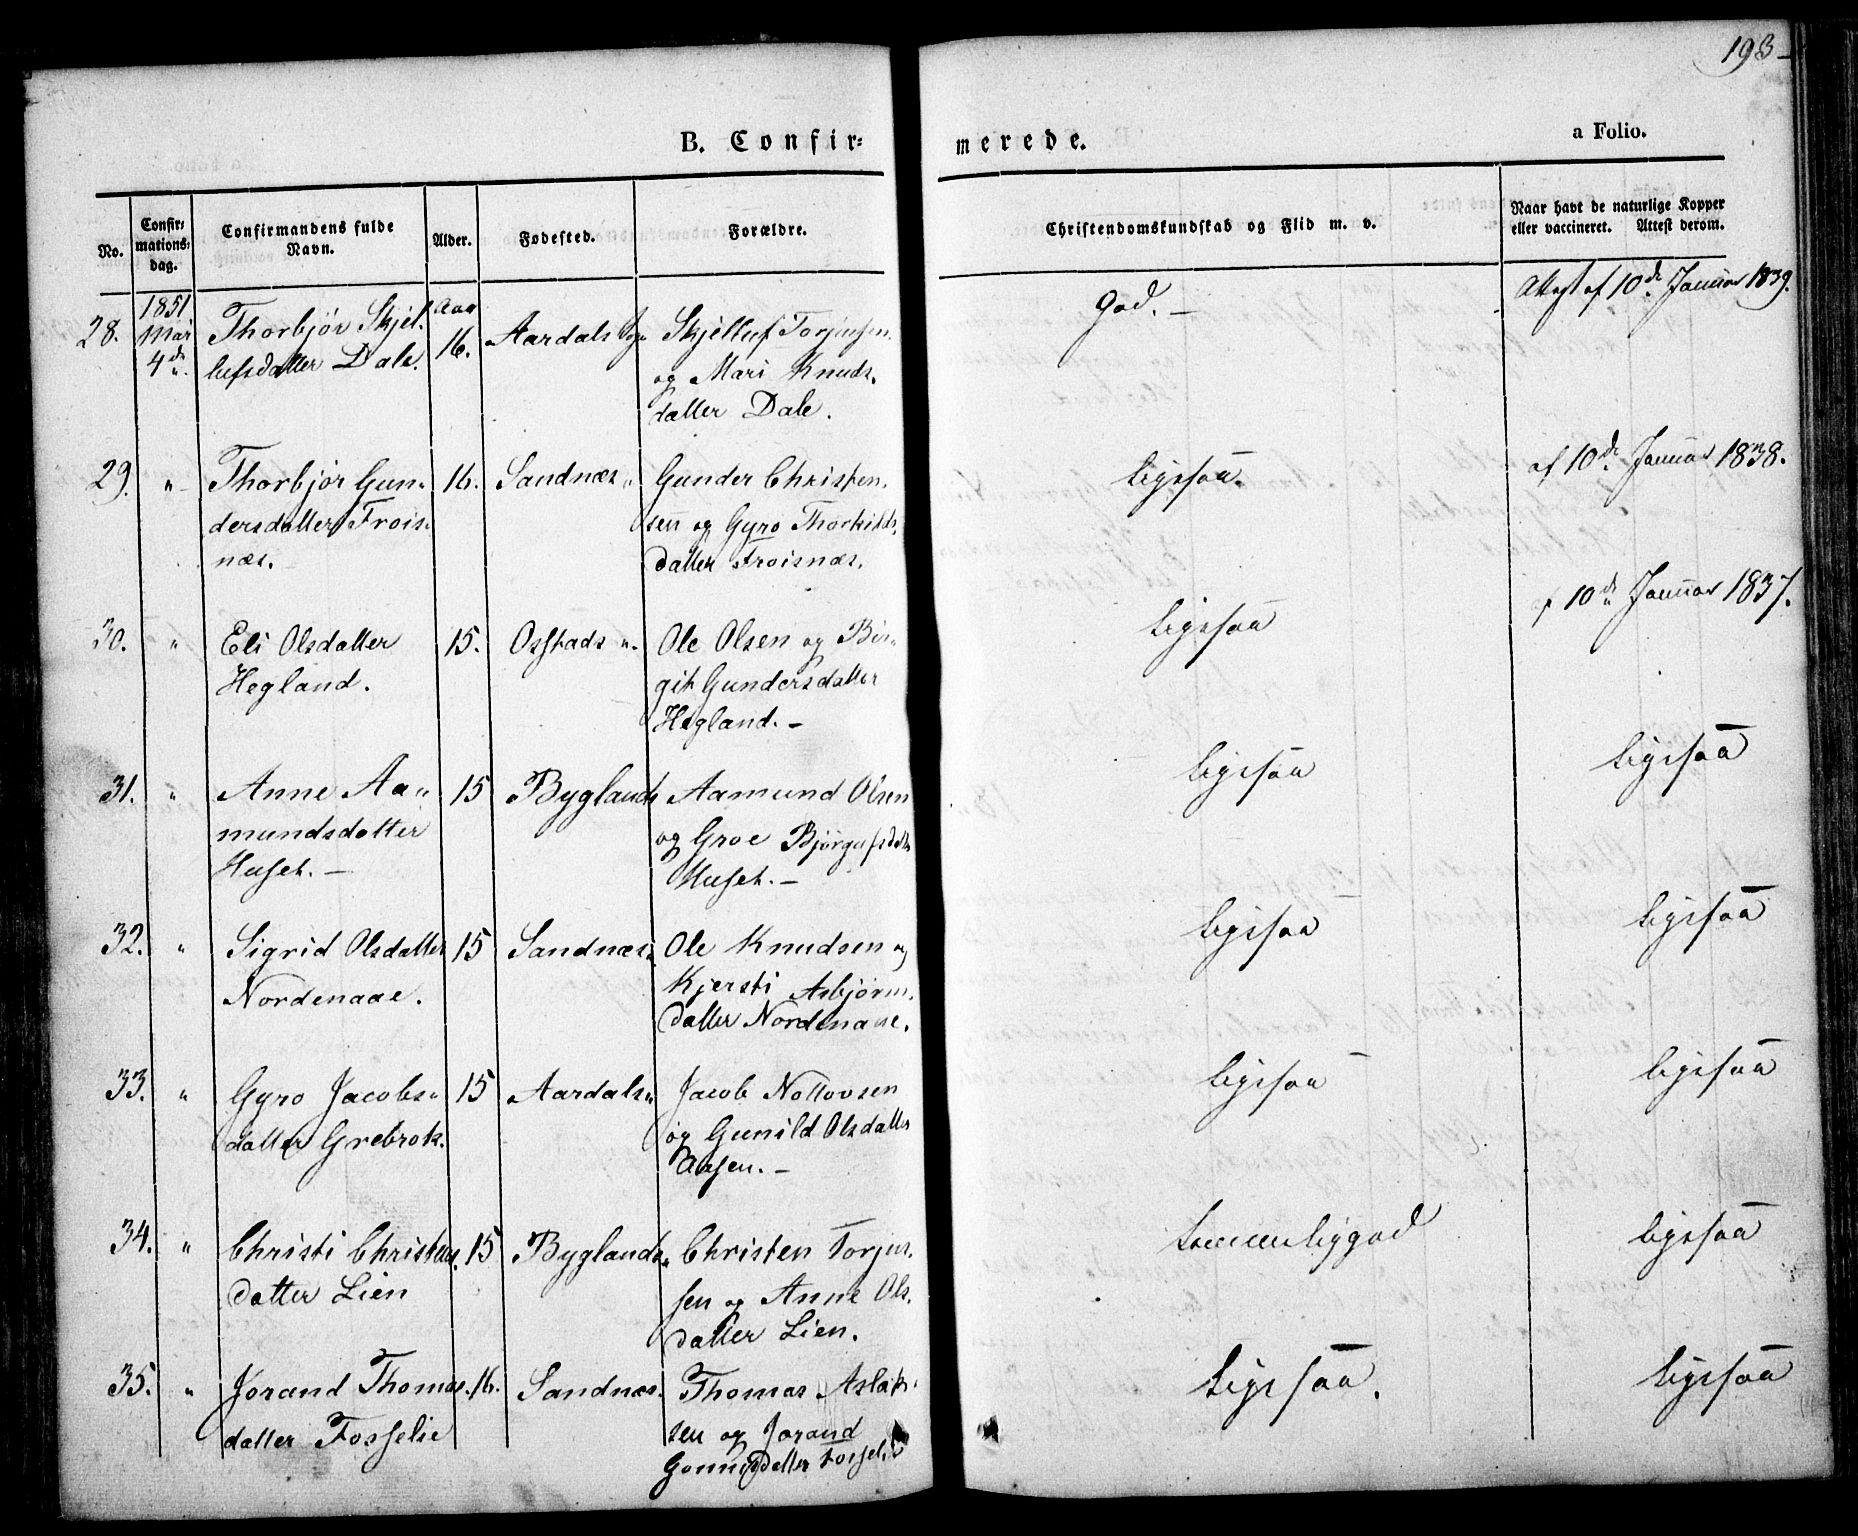 193
B. Confir=
merede.
a Folio.
No.
Confir=
mations=
dag.
Confirmandens fulde
Navn.
Alder.
Fødested.
Forældre.
Christendomskundskab og Flid m. v.
Naar havt de naturlige Kopper
eller vaccineret. Attest derom.
28.
1851
Mai
4de
Thorbjør Skjel-
lufsdatter Dale.
Aar
16.
Aardals Sogn
Skjelluf Torjusen
og Mari Knuds.
datter Dale.
God. -
Attest af 10de Januar 1839.
29.
"
Thorbjør Gun-
dersdatter Frois-
næs.
16.
Sandnæs "
Gunder Christen.
sen og Gyro Thorkilds.
datter Froisnæs.
ligesaa.
af 10de Januar 1838.
30.
"
Eli Olsdatter
Hegland.
15.
Osstads ".
Ole Olsen og Bir-
git Gundersdatter
Hegland. -
ligesaa
af 10de Januar 1837.
31.
"
Anne Aa-
mundsdatter
Huset. -
15
Byglands
Aamund Olsen
og Groe Bjørgufsdatter
Huset. -
ligesaa
ligesaa
32.
"
Sigrid Olsdatter
Nordenaae.
15
Sandnæs
Ole Knudsen og
Kjersti Asbjørns.
datter Nordenaae.
ligesaa
ligesaa
33.
"
Gyro Jacobs-
datter Grebrok.
15
Aardals "
Jacob Nottovsen
og Gunild Olsdatter
Aasen. -
ligesaa
ligesaa
34.
"
Christi Christens.
datter Lien
15
Byglands "
Christen Torjus.
sen og Anne Ols.
datter Lien.
Temmelig god
ligesaa
35.
"
Jorand Thomas.
datter Fosselie
16.
Sandnæs.
Thomas Aslak-
sen og Jorand
datter Fosselie
Ligesaa.
ligesaa